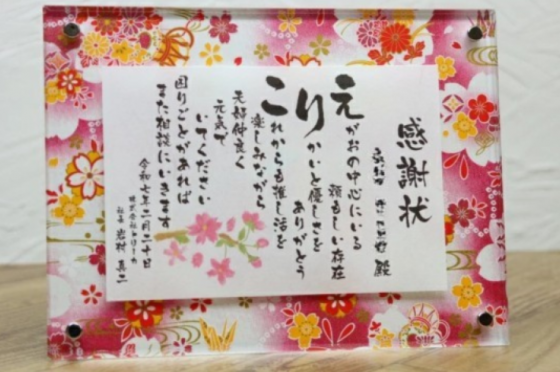 感謝状
殿
えがおの中心にいる
頼もしい存在
りかいと優しさを
ありがとう
これからも推し活を
楽しみながら
夫婦仲良く
元気で
いてください
困りごとがあれば
また相談にいきます
令和七年二月二十日
株式会社
社長 岩村 真二